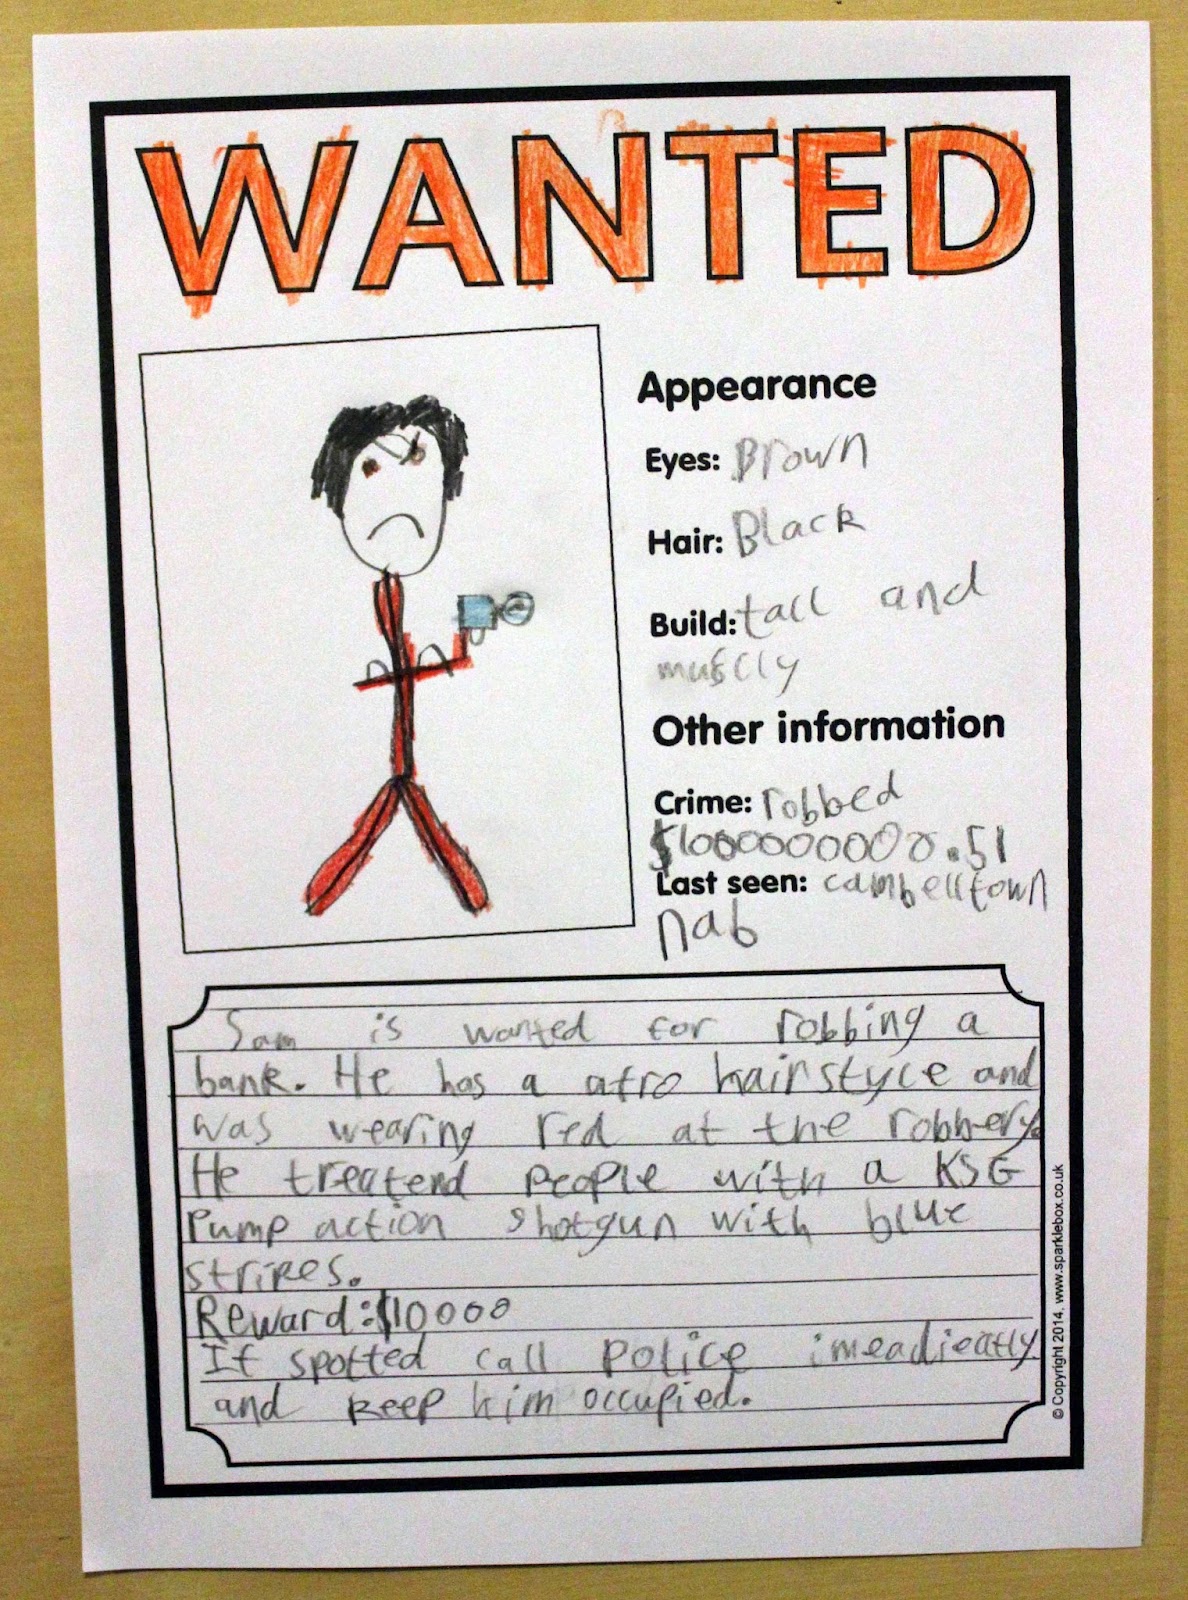 WANTED
Appearance
Eyes: Brown
Hair: Black
Build: tall and
muscly
Other information
Crime: robbed
$10000000000.51
Last seen: cambelltown
nab
Sam is wanted for robbing a
bank. He has a afro hairstyle and
was wearing red at the robbery.
He treatend people with a KSG
Pump action shotgun with blue
stripes.
Reward: $10000
If spotted call police imeadieatly
and keep him occupied.
© Copyright 2014, www.sparklebox.co.uk